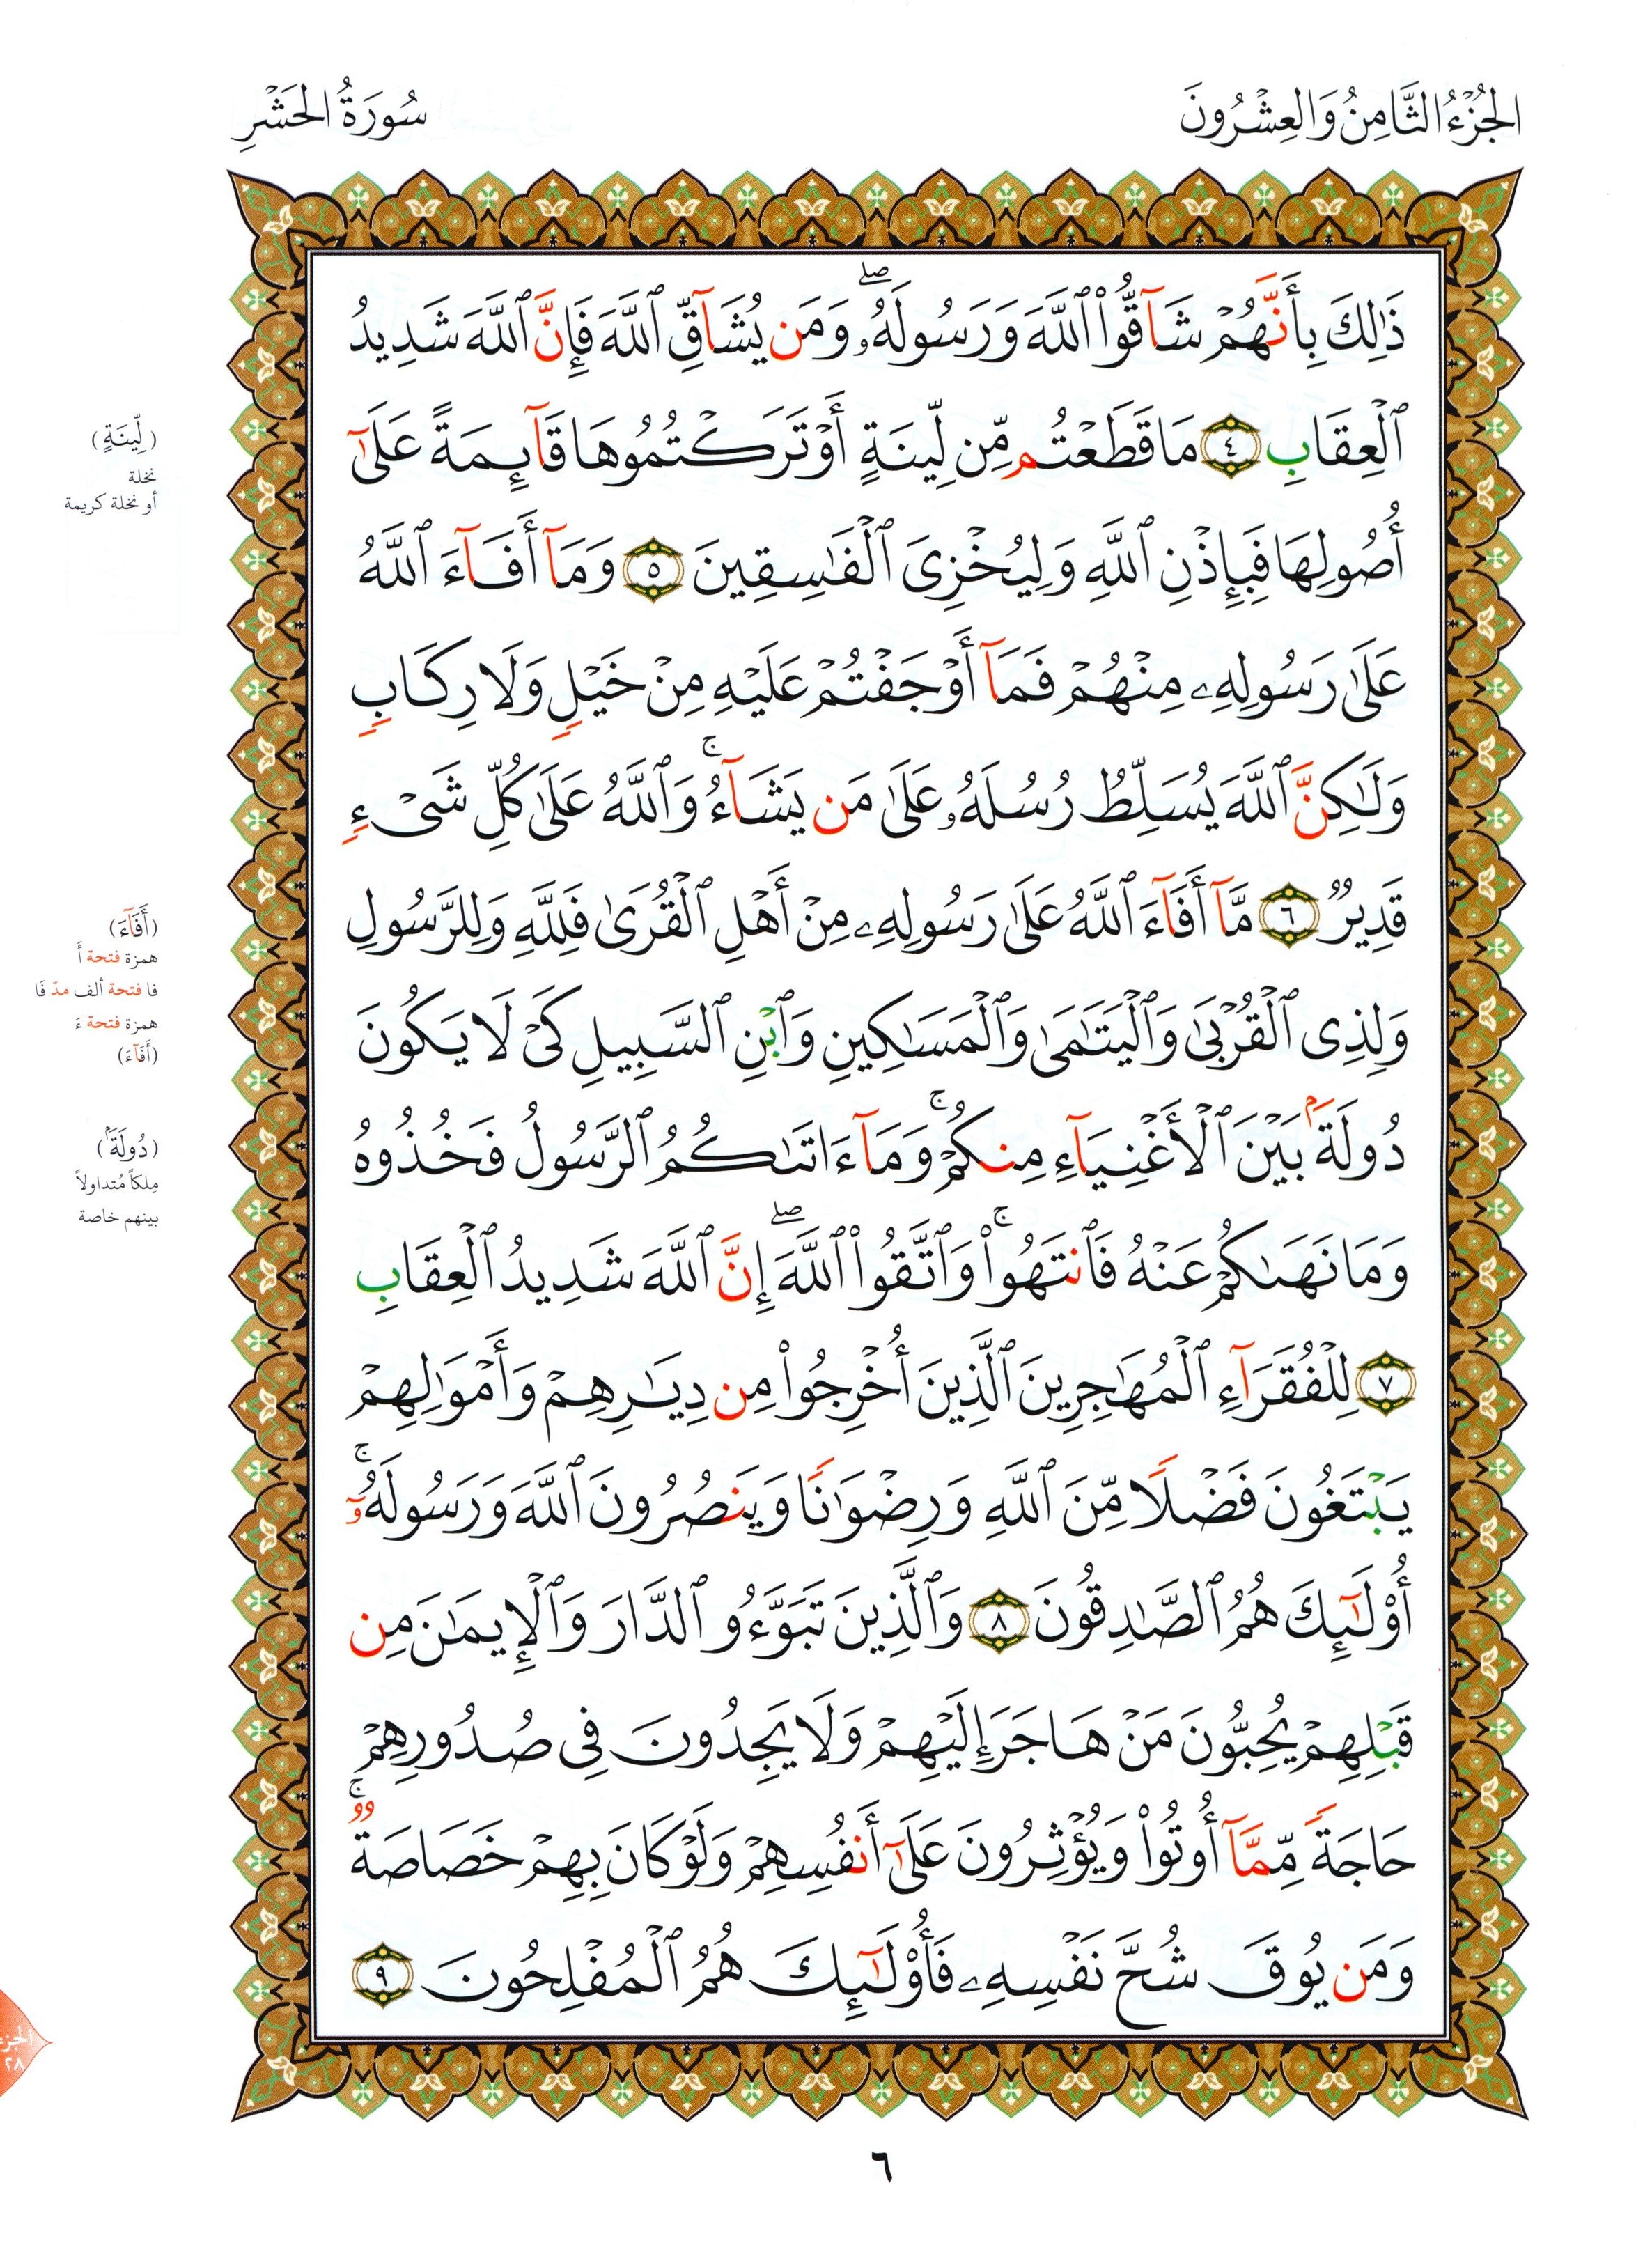 الجُزْءُ الثَّامِنُ وَالعِشْرُونَ
سُورَةُ الحَشْرِ
ذَٰلِكَ بِأَنَّهُمْ شَآقُّوا۟ ٱللَّهَ وَرَسُولَهُۥ ۖ وَمَن يُشَآقِّ ٱللَّهَ فَإِنَّ ٱللَّهَ شَدِيدُ
ٱلْعِقَابِ ٤ مَا قَطَعْتُم مِّن لِّينَةٍ أَوْ تَرَكْتُمُوهَا قَآئِمَةً عَلَىٰٓ
أُصُولِهَا فَبِإِذْنِ ٱللَّهِ وَلِيُخْزِىَ ٱلْفَـٰسِقِينَ ٥ وَمَآ أَفَآءَ ٱللَّهُ
عَلَىٰ رَسُولِهِۦ مِنْهُمْ فَمَآ أَوْجَفْتُمْ عَلَيْهِ مِنْ خَيْلٍ وَلَا رِكَابٍ
وَلَـٰكِنَّ ٱللَّهَ يُسَلِّطُ رُسُلَهُۥ عَلَىٰ مَن يَشَآءُ ۚ وَٱللَّهُ عَلَىٰ كُلِّ شَىْءٍ
قَدِيرٌ ٦ مَّآ أَفَآءَ ٱللَّهُ عَلَىٰ رَسُولِهِۦ مِنْ أَهْلِ ٱلْقُرَىٰ فَلِلَّهِ وَلِلرَّسُولِ
وَلِذِى ٱلْقُرْبَىٰ وَٱلْيَتَـٰمَىٰ وَٱلْمَسَـٰكِينِ وَٱبْنِ ٱلسَّبِيلِ كَىْ لَا يَكُونَ
دُولَةًۢ بَيْنَ ٱلْأَغْنِيَآءِ مِنكُمْ ۚ وَمَآ ءَاتَىٰكُمُ ٱلرَّسُولُ فَخُذُوهُ
وَمَا نَهَىٰكُمْ عَنْهُ فَٱنتَهُوا۟ ۚ وَٱتَّقُوا۟ ٱللَّهَ ۖ إِنَّ ٱللَّهَ شَدِيدُ ٱلْعِقَابِ
٧ لِلْفُقَرَآءِ ٱلْمُهَـٰجِرِينَ ٱلَّذِينَ أُخْرِجُوا۟ مِن دِيَـٰرِهِمْ وَأَمْوَٰلِهِمْ
يَبْتَغُونَ فَضْلًا مِّنَ ٱللَّهِ وَرِضْوَٰنًا وَيَنصُرُونَ ٱللَّهَ وَرَسُولَهُۥٓ ۚ
أُو۟لَـٰٓئِكَ هُمُ ٱلصَّـٰدِقُونَ ٨ وَٱلَّذِينَ تَبَوَّءُو ٱلدَّارَ وَٱلْإِيمَـٰنَ مِن
قَبْلِهِمْ يُحِبُّونَ مَنْ هَاجَرَ إِلَيْهِمْ وَلَا يَجِدُونَ فِى صُدُورِهِمْ
حَاجَةً مِّمَّآ أُوتُوا۟ وَيُؤْثِرُونَ عَلَىٰٓ أَنفُسِهِمْ وَلَوْ كَانَ بِهِمْ خَصَاصَةٌ ۚ
وَمَن يُوقَ شُحَّ نَفْسِهِۦ فَأُو۟لَـٰٓئِكَ هُمُ ٱلْمُفْلِحُونَ ٩
(لِّينَةٍ)
نخلة
أو نخلة كريمة
(أَفَآءَ)
همزة فتحة أَ
فا فتحة ألف مدّ فَا
همزة فتحة ءَ
(أَفَآءَ)
(دُولَةًۢ)
مِلكاً مُتداولاً
بينهم خاصة
الجزء
٢٨
٦